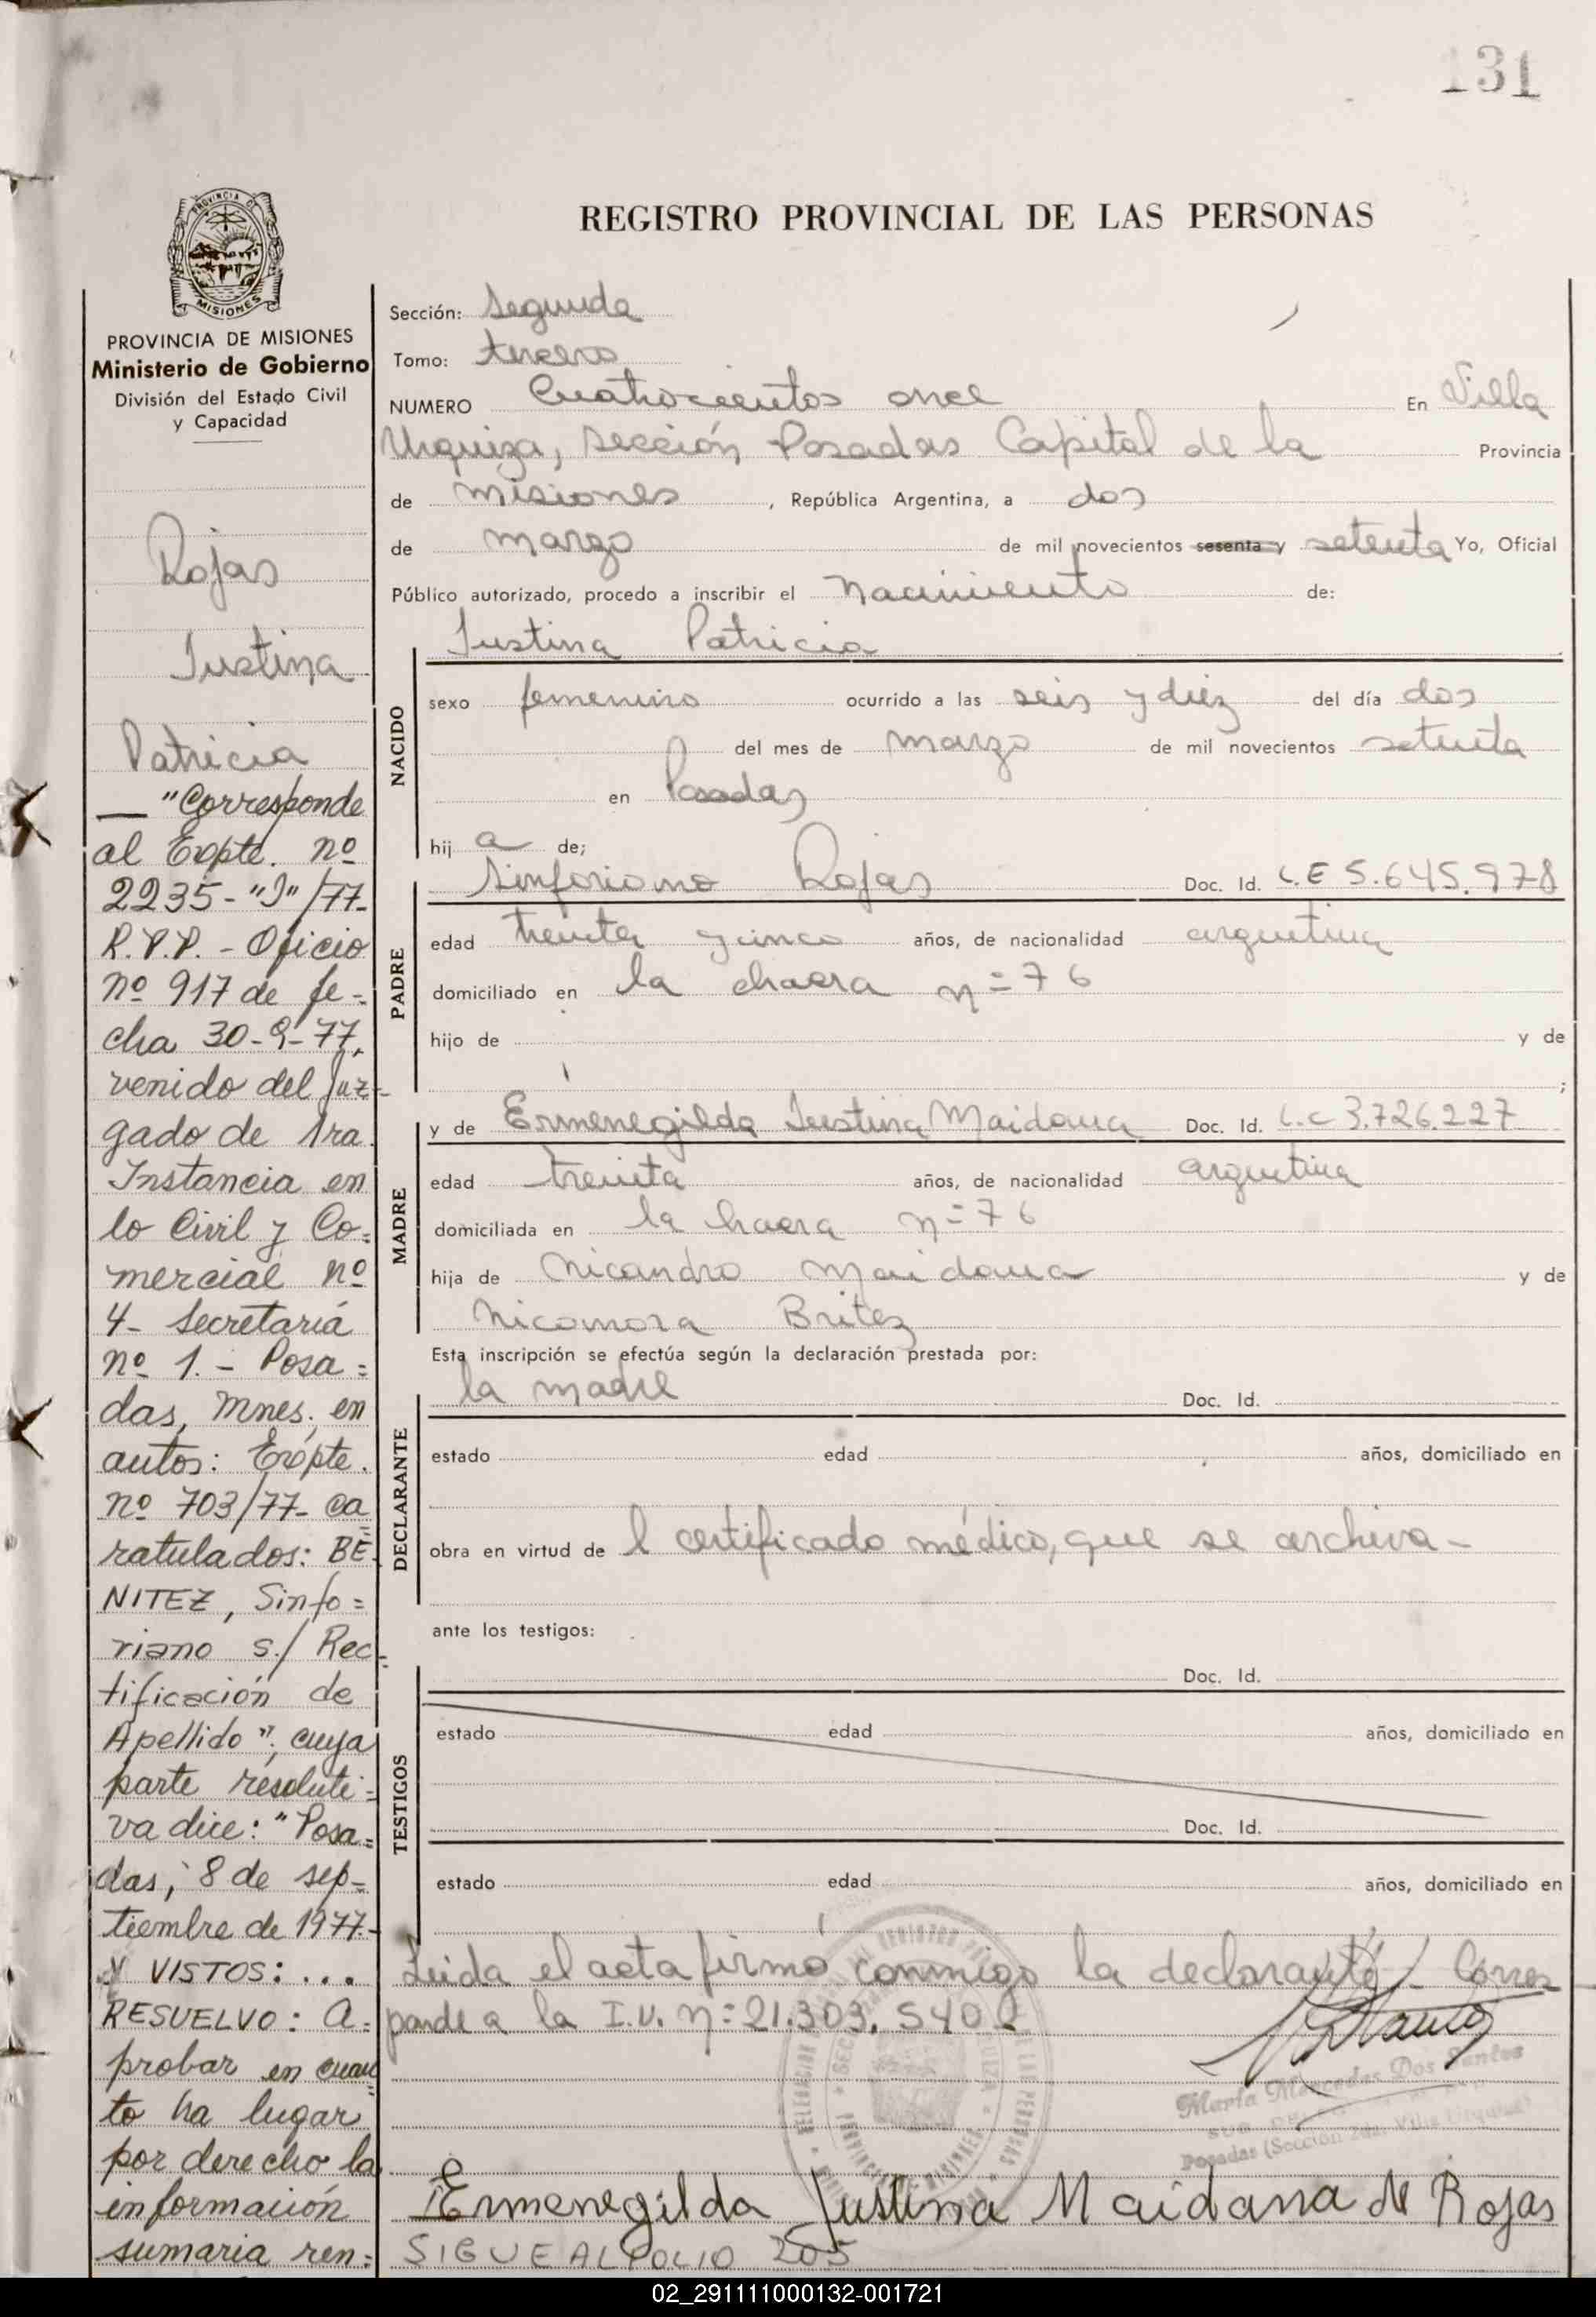 131
PROVINCIA DE
MISIONES
PROVINCIA DE MISIONES
Ministerio de Gobierno
División del Estado Civil
y Capacidad
Rojas
Justina
Patricia
— "Corresponde
al Expte. nº
2235-"J"/77-
R.P.P. - Oficio
nº 917 de fe=
cha 30-9-77,
venido del Juz-
gado de 1ra.
Instancia en
lo Civil y Co=
mercial nº
4- Secretaría
nº 1.- Posa=
das, Mnes. en
autos: Expte.
nº 703/77- ca
ratulados: BE=
NITEZ, Sinfo=
riano s./ Rec-
tificación de
Apellido", cuya
parte resoluti=
va dice: "Posa=
das, 8 de sep-
tiembre de 1977.-
Y VISTOS: ...
RESUELVO: A=
probar en cuan
to ha lugar
por derecho la
información
sumaria ren=
REGISTRO PROVINCIAL DE LAS PERSONAS
Sección: Segunda
Tomo: tercero
NUMERO Cuatrocientos once En Villa
Urquiza, sección Posadas Capital de la Provincia
de Misiones, República Argentina, a dos
de marzo de mil novecientos sesenta y setenta Yo, Oficial
Público autorizado, procedo a inscribir el Nacimiento de:
Justina Patricia
NACIDO
sexo femenino ocurrido a las seis y diez del día dos
del mes de marzo de mil novecientos setenta
en Posadas
hij a de;
PADRE
Sinforiano Rojas Doc. Id. L.E 5.645.978
edad treinta y cinco años, de nacionalidad argentina
domiciliado en la chacra nº 76
hijo de y de
;
MADRE
y de Ermenegilda Justina Maidana Doc. Id. L.C 3.726.227
edad treinta años, de nacionalidad argentina
domiciliada en la hacra nº 76
hija de Nicandro Maidana y de
Nicomora Britez
Esta inscripción se efectúa según la declaración prestada por:
DECLARANTE
la madre Doc. Id.
estado edad años, domiciliado en
obra en virtud de l certificado médico, que se archiva-
ante los testigos:
TESTIGOS
Doc. Id.
estado edad años, domiciliado en
Doc. Id.
estado edad años, domiciliado en
Leida el acta firmó conmigo la declarante/- Corres
ponde a la I.U. nº 21.303.540
María Mercedes Dos Santos
Posadas (Sección 2da. Villa Urquiza)
Ermenegilda Justina Maidana de Rojas
SIGUE AL FOLIO 205
02_291111000132-001721